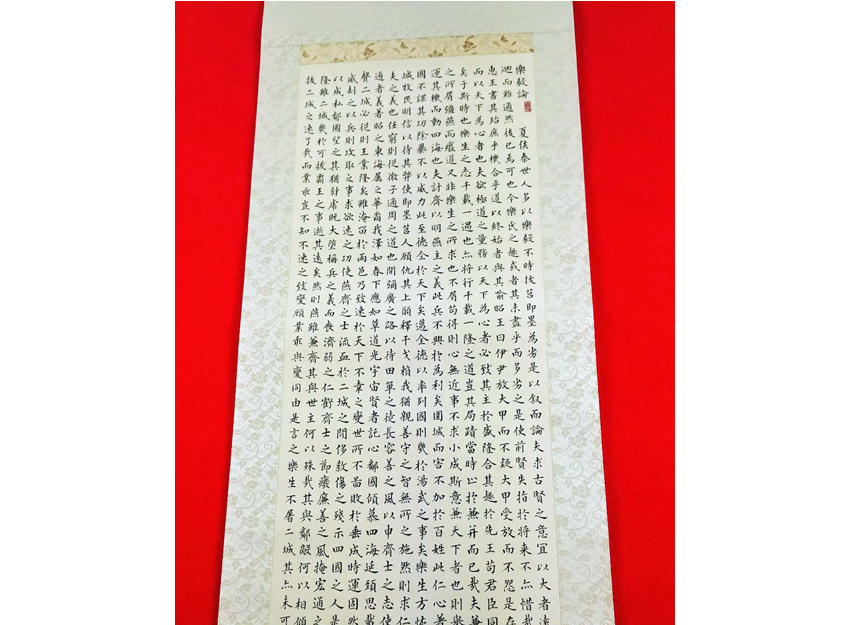 樂毅論 夏侯泰 世人多以樂毅不時拔莒即墨為劣是以叙而論夫求古賢之意宜以大者遠
迴而難通然後已焉可也今樂氏之趣或者其未盡乎而多劣之是使前賢失指於將来不亦惜哉
惠王書其殆庶乎機合乎道以終始者與其喻昭王曰伊尹放大甲而不疑大甲受放而不怨是存
而以天下為心者也夫欲極道之量務以天下為心者必致其主於盛隆合其趣於先王苟君臣同
矣于斯時也樂生之志千載一遇也亦將行千載一隆之道豈其局蹟當時止於兼并而已哉夫兼
之所屑彊燕而廢道又非樂生之所求也不屑苟得則心無近事不求小成斯意兼天下者也則舉
運其機而動四海也夫討齊以明燕主之義此兵不興於為利矣圍城而害不加於百姓此仁心著
國不謀其功除暴不以威力此至德全於天下矣邁全德以率列國則幾於湯武之事矣樂生方恢
城牧民明信以待其弊使即墨莒人顧仇其上願釋干戈賴我猶親善守之智無所之施然則求仁
夫之義也任窮則從微子適周之道也開彌廣之路以待田單之徒長容善之風以申齊士之志使
通者義著昭之東海屬之華裔我澤如春下應如草道光宇宙賢者託心鄰國傾慕四海延頸思戴
聲二城必從則王業隆矣雖淹留於兩邑乃致速於天下不幸之變世所不啚敗於垂成時運固然
威刼之以兵則攻取之事求欲速之功使燕齊之士流血於二城之間侈殺傷之殘示四國之人是
以成私鄰國望之其猶犲虎既大墮稱兵之義而喪濟弱之仁虧齊士之節廢廉善之風掩宏通之
隆雖二城幾於可拔霸王之事逝其遠矣然則燕雖兼齊其與世主何以殊哉其與鄰敵何以相傾
拔二城之速了哉而業乖豈不知不速之致變顧業乖與變同由是言之樂生不屠二城其亦未可